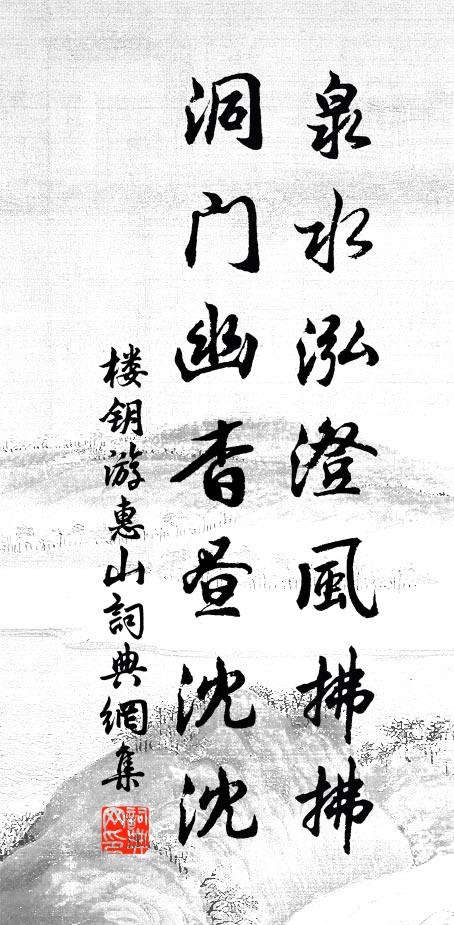 泉水泓澄風拂拂
洞门幽杳昼沈沈
楼钥游惠山詞典網集